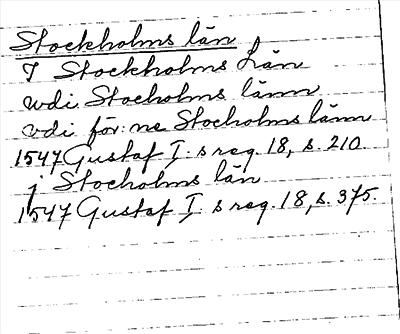 Stockholms län
I Stockholms Län
wdi Stocholms länn
vdi för:ne Stocholms länn
1547 Gustaf I:s reg. 18, s. 210.
j Stocholms län
1547 Gustaf I:s reg. 18, s. 375.